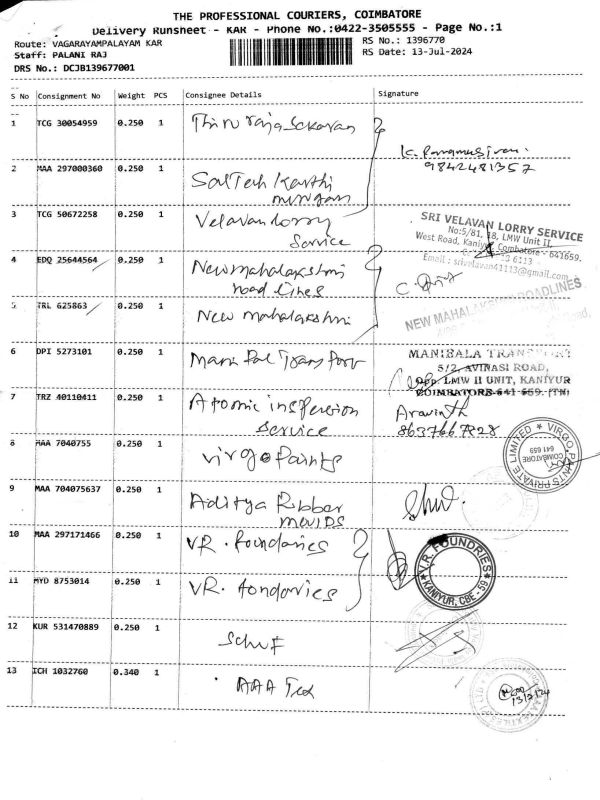 THE PROFESSIONAL COURIERS, COIMBATORE
Delivery Runsheet - KAR - Phone No.:0422-3505555 - Page No.:1
Route: VAGARAYAMPALAYAM KAR
RS No.: 1396770
Staff: PALANI RAJ
RS Date: 13-Jul-2024
DRS No.: DCJB139677001
S No Consignment No Weight PCS Consignee Details Signature
1 TCG 30054959 0.250 1
2 MAA 297000360 0.250 1
9842481357
3 TCG 50672258 0.250 1 Velavan Lorry
Service
SRI VELAVAN LORRY SERVICE
No:5/81, 18, LMW Unit II,
West Road, Kaniyur, Coimbatore - 641659.
Email : srivelavan41113@gmail.com
4 EDQ 25644564 0.250 1 New mahalakshmi
road lines
5 TRL 625863 0.250 1 New mahalakshmi
NEW MAHALAKSHMI ROADLINES
6 DPI 5273101 0.250 1
MANIBALA TRANSPORT
5/2, AVINASI ROAD,
Opp. LMW II UNIT, KANIYUR
COIMBATORE-641 659. (TN)
7 TRZ 40110411 0.250 1 Atomic inspection
Service
Aravinth
8637667828
8 MAA 7040755 0.250 1 Virgo Paints
VIRGO PAINTS PRIVATE LIMITED
COIMBATORE
641 659
9 MAA 704075637 0.250 1 Aditya Rubber
10 MAA 297171466 0.250 1 VR. Foundaries
V.R. FOUNDRIES
KANIYUR, CBE - 59
11 MYD 8753014 0.250 1 VR. Fondaries
12 KUR 531470889 0.250 1
13 ICH 1032760 0.340 1 AAA Tex
13/7/24